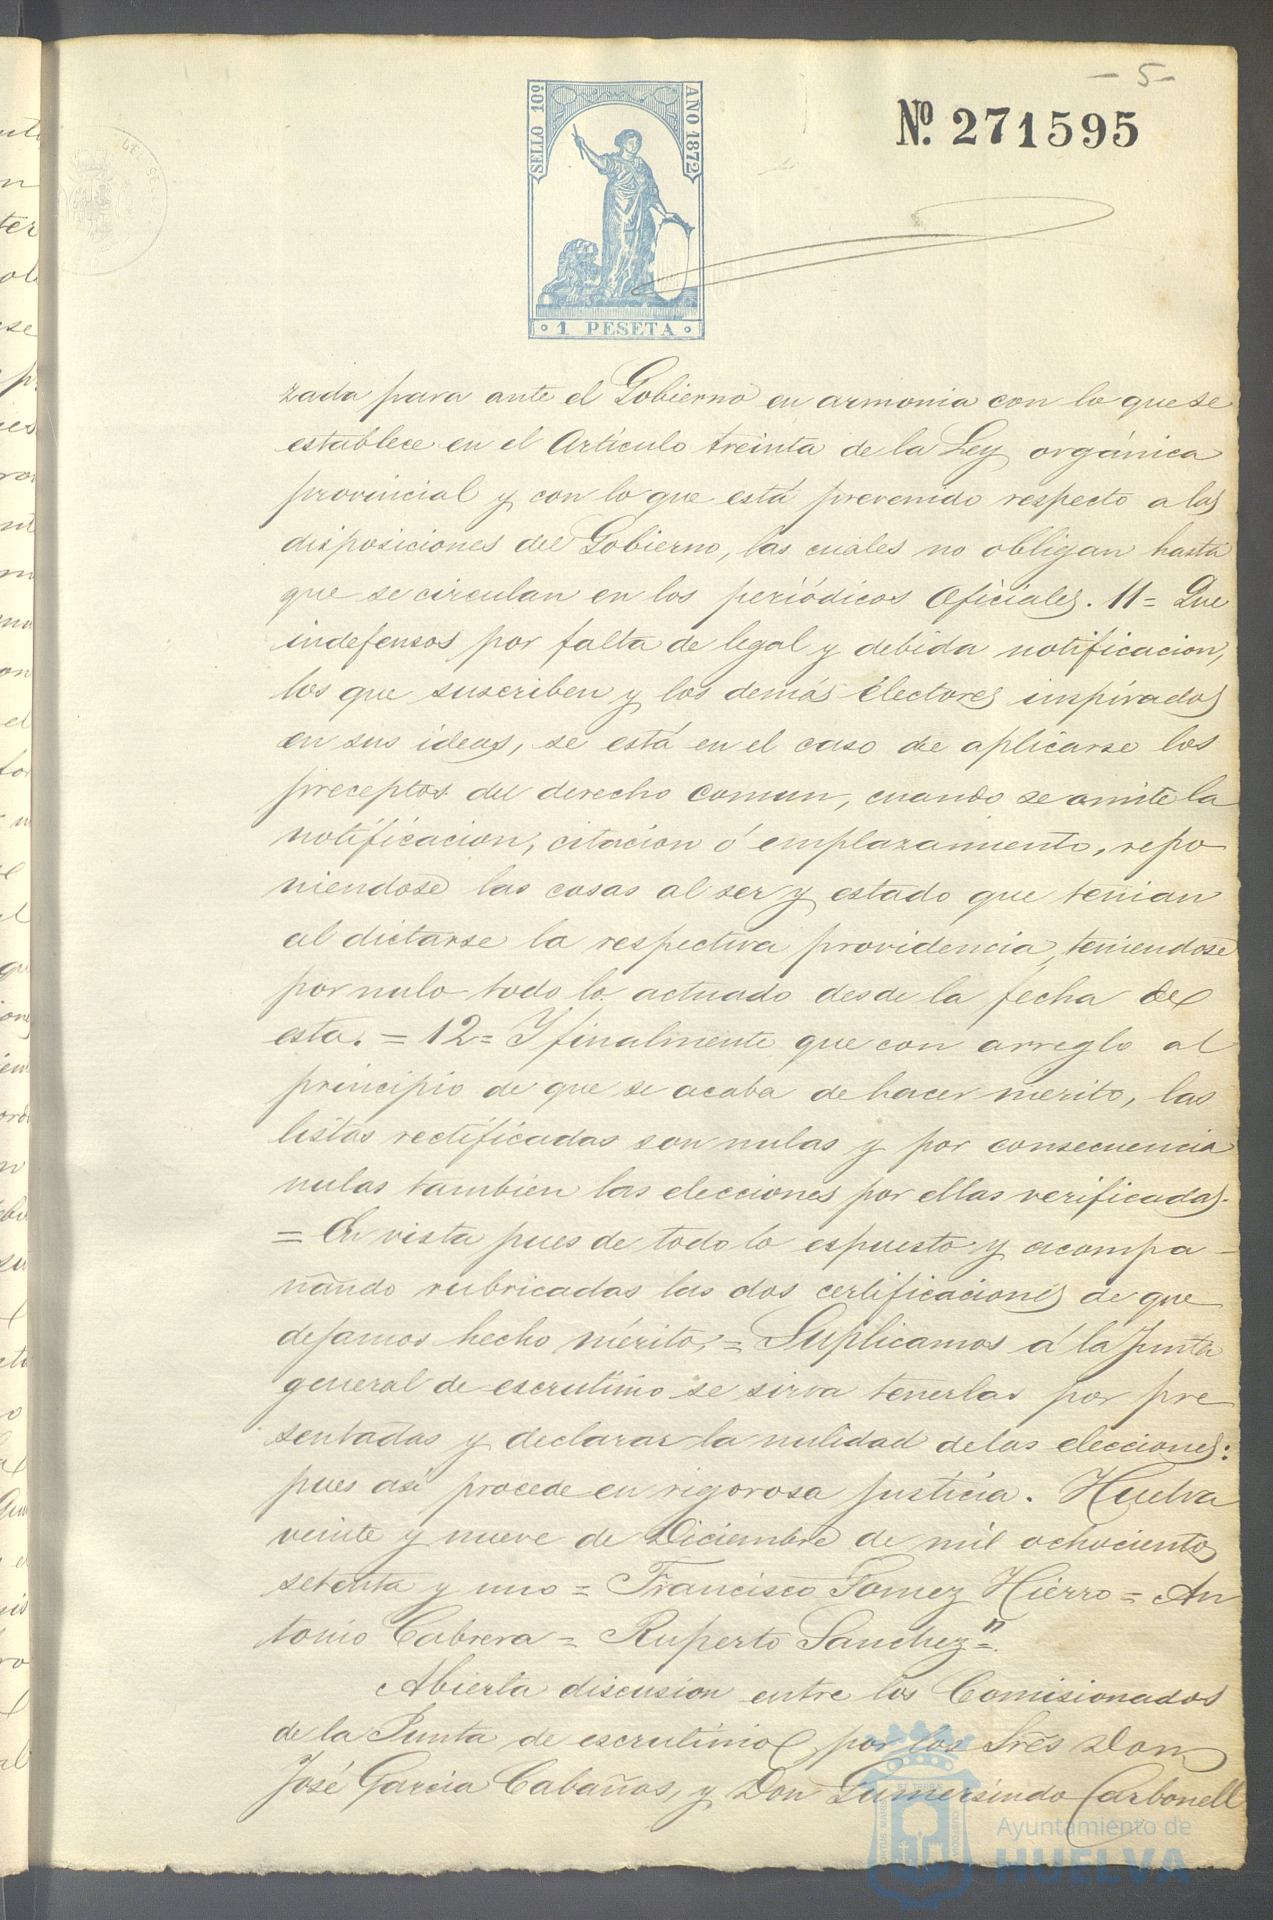 - 5 -
Nº. 271595
SELLO 10º
AÑO 1872
1 PESETA
zada para ante el Gobierno en armonia con lo que se
establece en el Artículo treinta de la Ley orgánica
provincial y con lo que está prevenido respecto a las
disposiciones del Gobierno, las cuales no obligan hasta
que se circulan en los periódicos Oficiales. 11= Que
indefensos por falta de legal y debida notificacion,
los que suscriben y los demás électores inspirados
en sus ideas, se está en el caso de aplicarse los
preceptos del derecho comun, cuando se omite la
notificacion, citacion ó emplazamiento, repo
niendose las cosas al ser y estado que tenian
al dictarse la respectiva providencia, teniendose
por nulo todo lo actuado desde la fecha de
esta. = 12= Y finalmente que con arreglo al
principio de que se acaba de hacer merito, las
listas rectificadas son nulas y por consecuencia
nulas tambien las elecciones por ellas verificadas.
= En vista pues de todo lo espuesto y acompa-
ñando rubricadas las dos certificaciones de que
dejamos hecho mérito, = Suplicamos á la Junta
general de escrutinio se sirva tenerlas por pre
sentadas y declarar la nulidad de las elecciones:
pues así procede en rigorosa justicia. Huelva
veinte y nueve de Diciembre de mil ochocientos
setenta y uno = Francisco Gomez Hierro = An
tonio Cabrera = Ruperto Sanchez =
Abierta discusion entre los Comisionados
de la Junta de escrutinio por los Sres Don
José Garcia Cabañas, y Don Gumersindo Carbonell
Ayuntamiento de
HUELVA